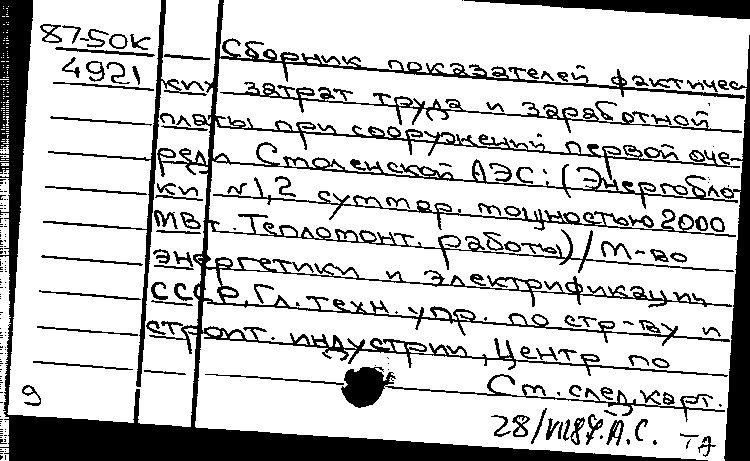 87-50К Сборник показателей фактичес
4921 ких затрат труда и заработной
платы при сооружений первой оче-
реди Смоленской АЭС: (Энергобло-
ки №1,2 суммар. мощностью 2000
МВт. Тепломонт. работы) / М-во
энергетики и электрификации
СССР, Гл. техн. упр. по стр-ву и
строит. индустрии, Центр по
См. след. карт.
9
28/VIII87. А.С. ТА